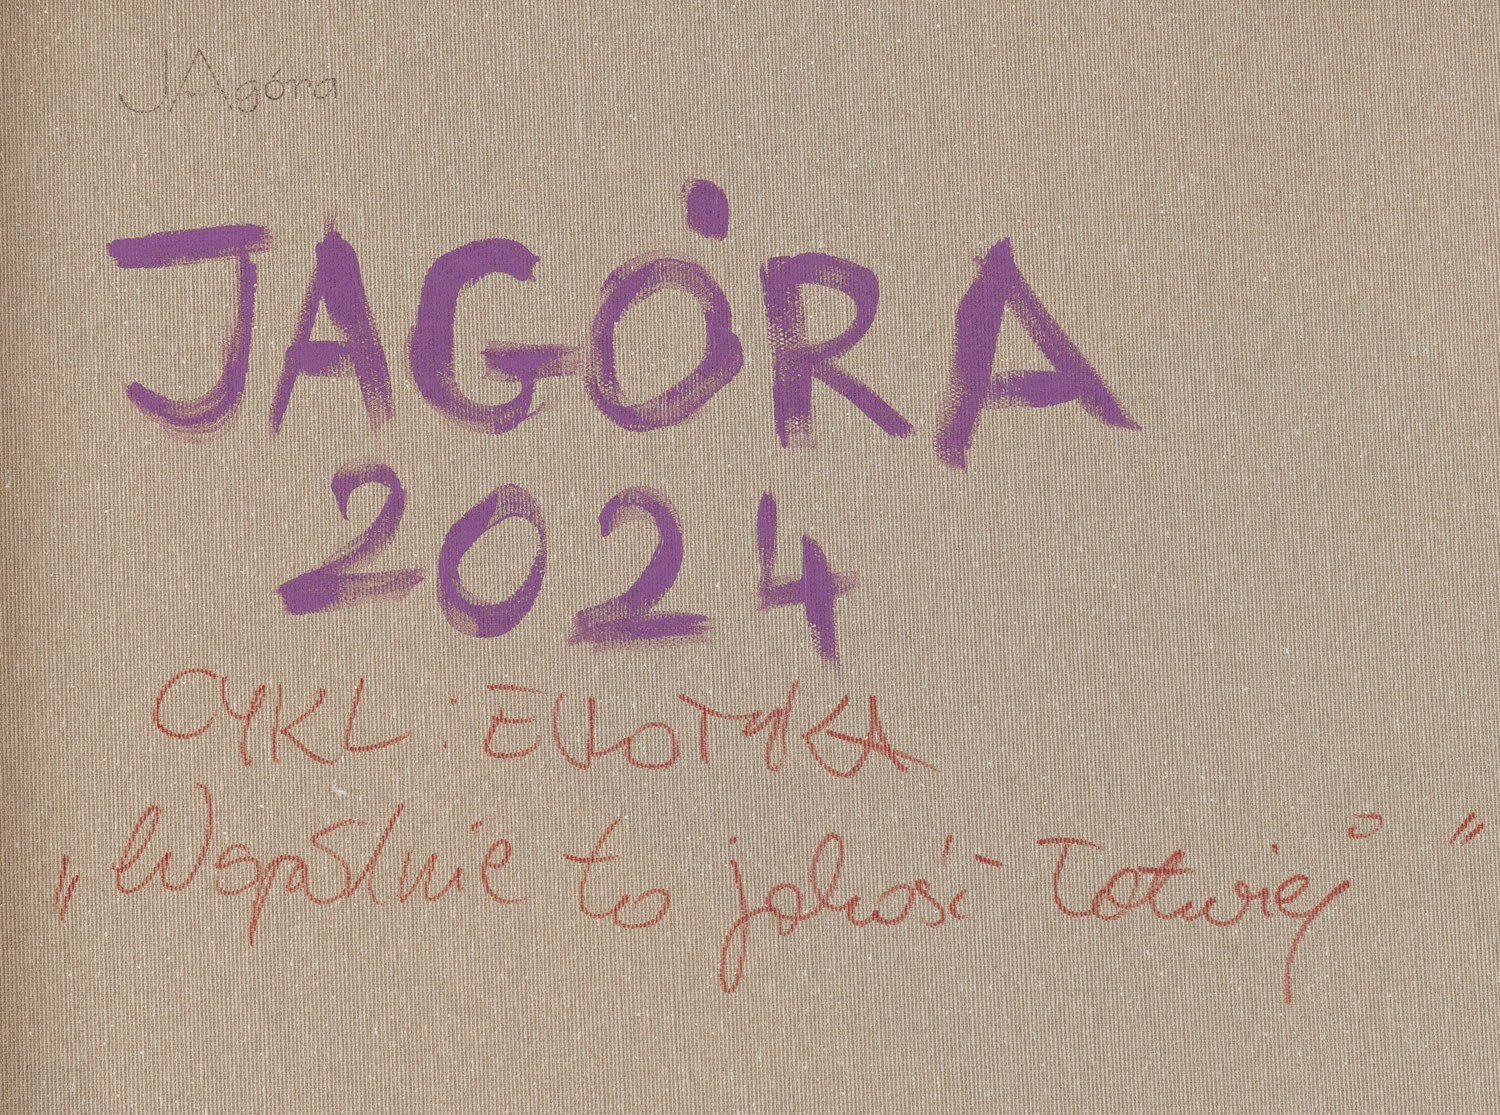 JAgóra
JAGÓRA
2024
CYKL :
„Wspólnie to jakoś łatwiej"